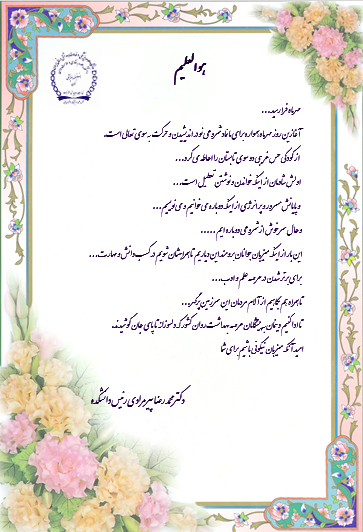 هوالعلیم
مهرماه فرارسید...
آغازین روز مهرماه همواره برای ما نماد شمره می‌شود، اندیشیدن و حرکت به سوی تعالی است.
از کودکی حس غریبی دو سوی تابستان را احاطه می‌کرد...
اولش شادمان از اینکه خواندن و نوشتن تعطیل است...
و پایانش مسرور و پر انرژی از اینکه دوباره می‌خوانیم و می‌نویسیم...
و حال سرخوش از شمره‌ی دوباره ایم .....
این بار از اینکه میزبان جوانان برومند این دیاریم تا همراهشان شویم در کسب دانش و مهارت...
برای برتر شدن در عرصه علم و ادب...
تا همراه هم بکاهیم از آلام مردمان این سرزمین پرگهر...
تا ادا کنیم دینمان به پیشگامان عرصه بهداشت روان کشور که دلسوزانه تا پای جان کوشیدند.
امید آنکه میزبان نیکویی باشیم برای شما
دکتر محمدرضا پیرمرادی رئیس دانشکده